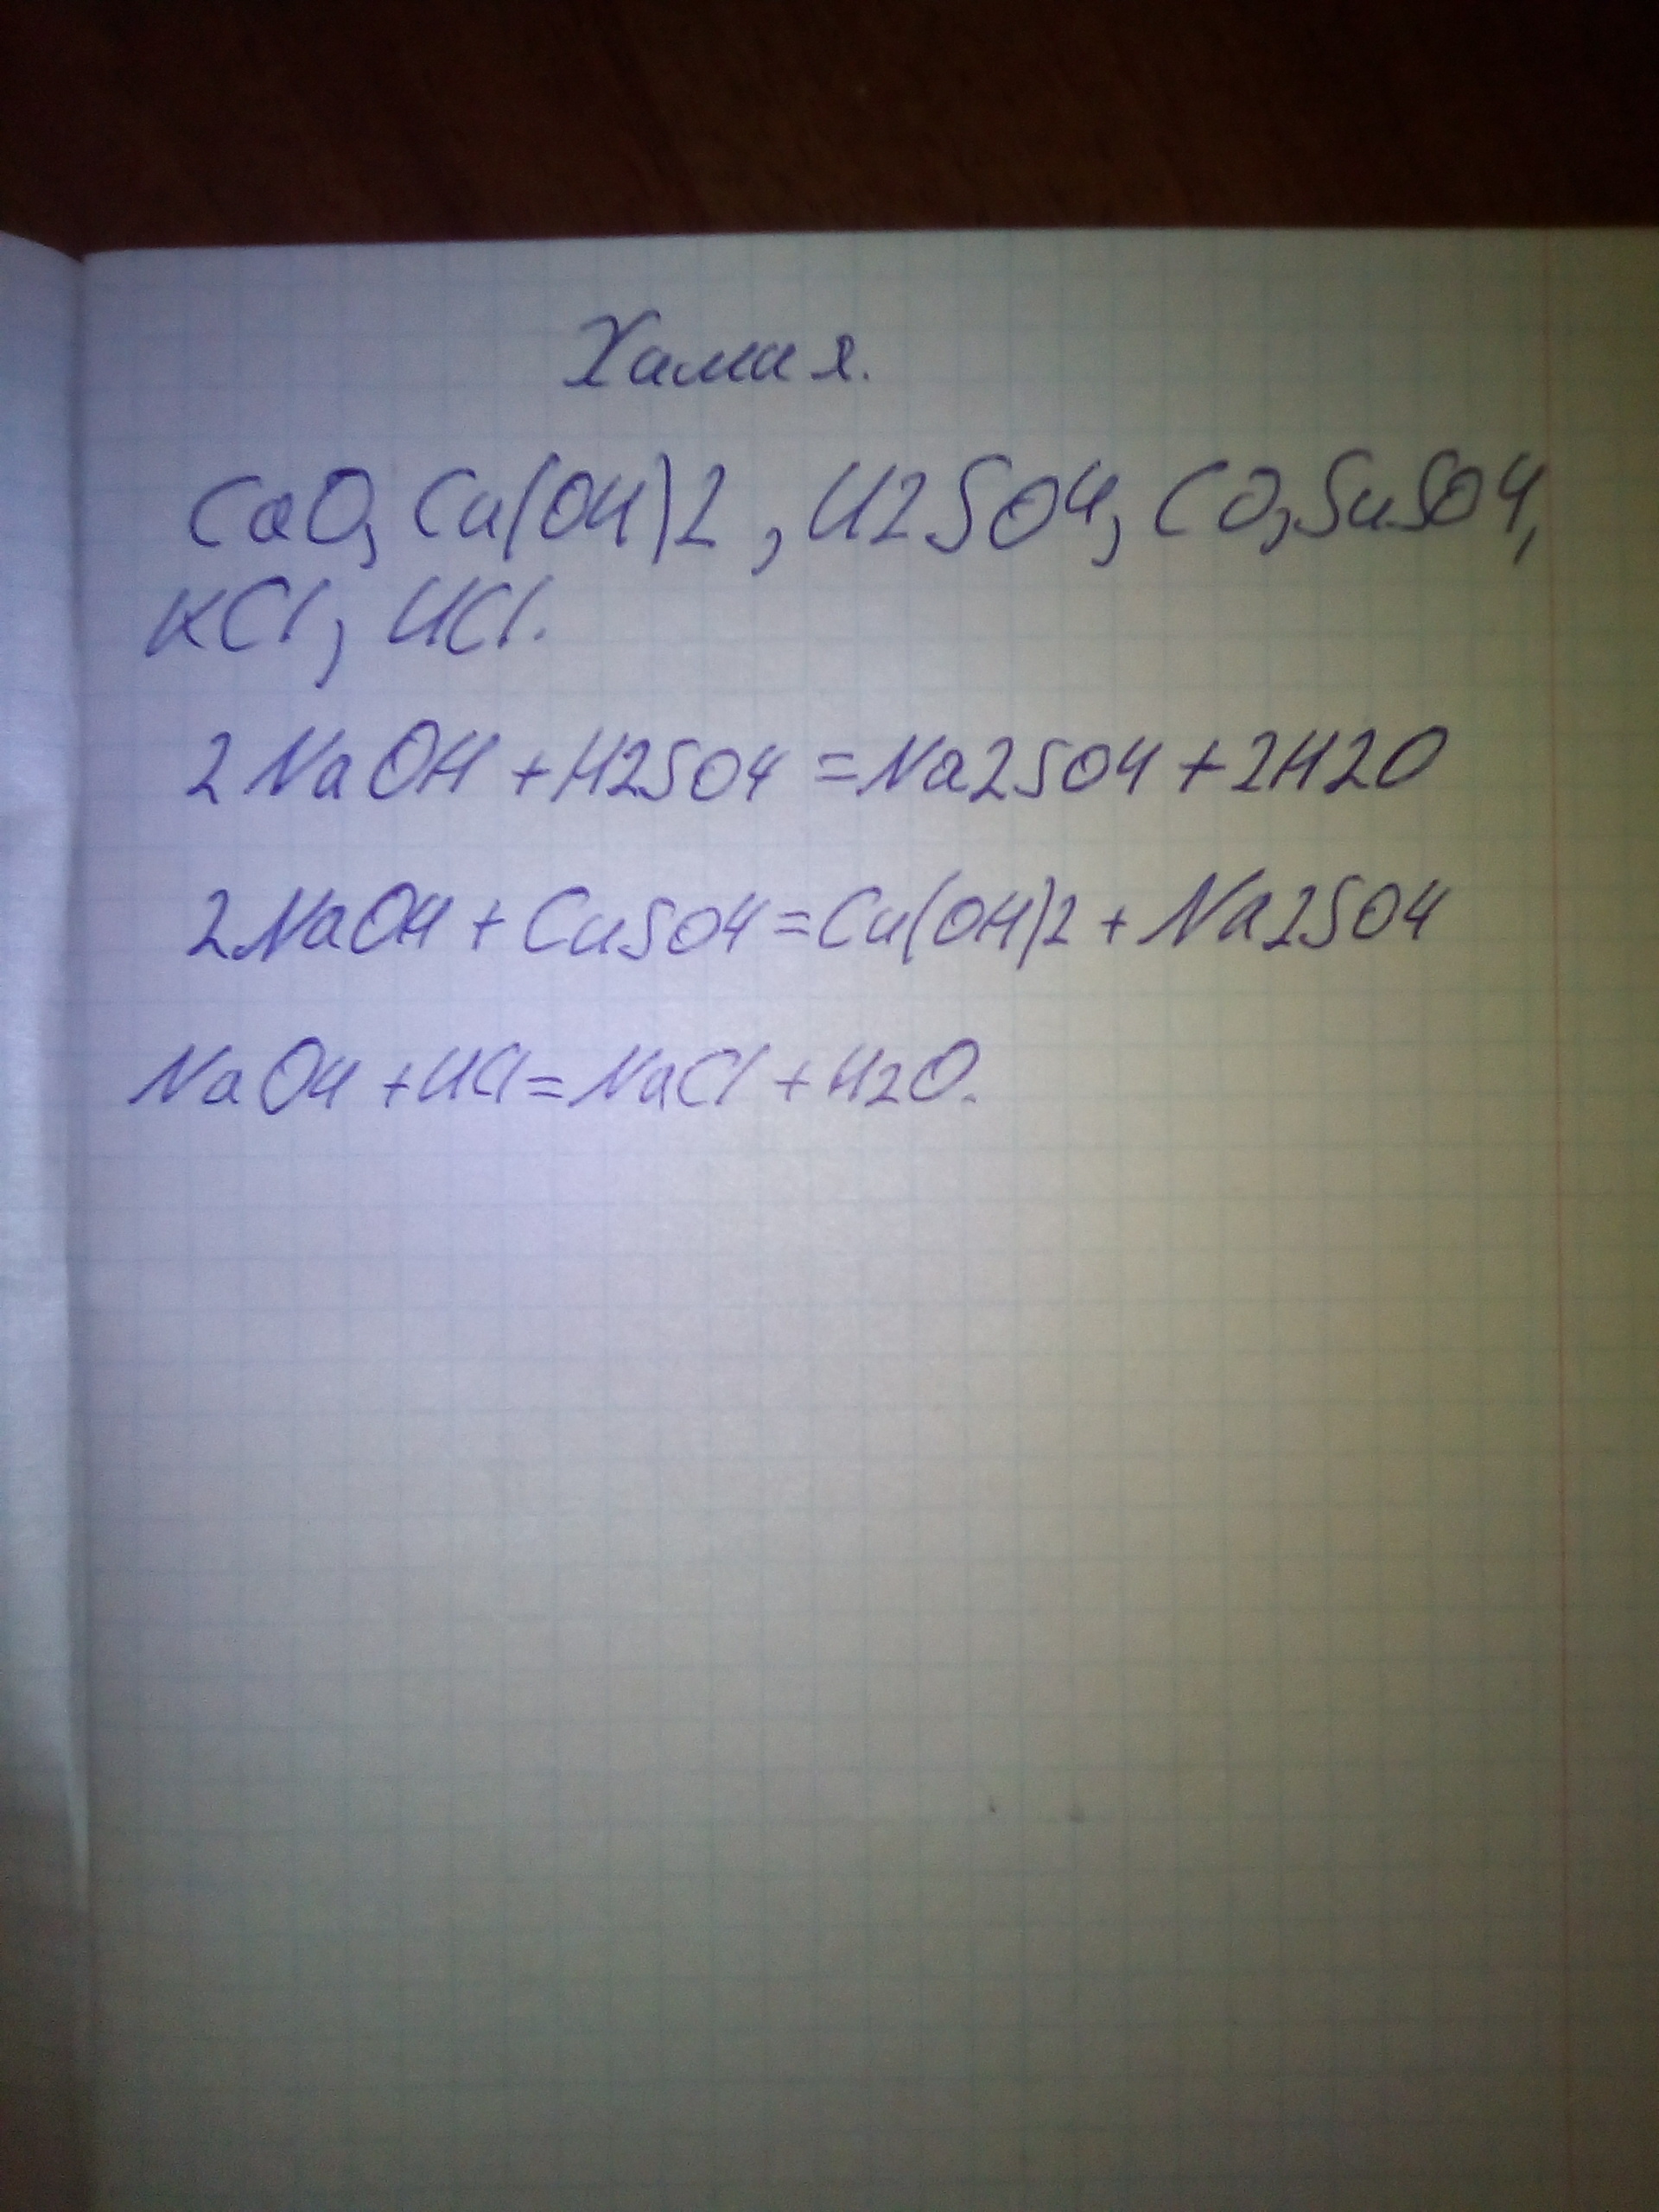 Хамия.
CaO, Cu(OH)2, H2SO4, CO, SuSO4,
KCl, HCl.
2NaOH + H2SO4 = Na2SO4 + 2H2O
2NaOH + CuSO4 = Cu(OH)2 + Na2SO4
NaOH + HCl = NaCl + H2O.